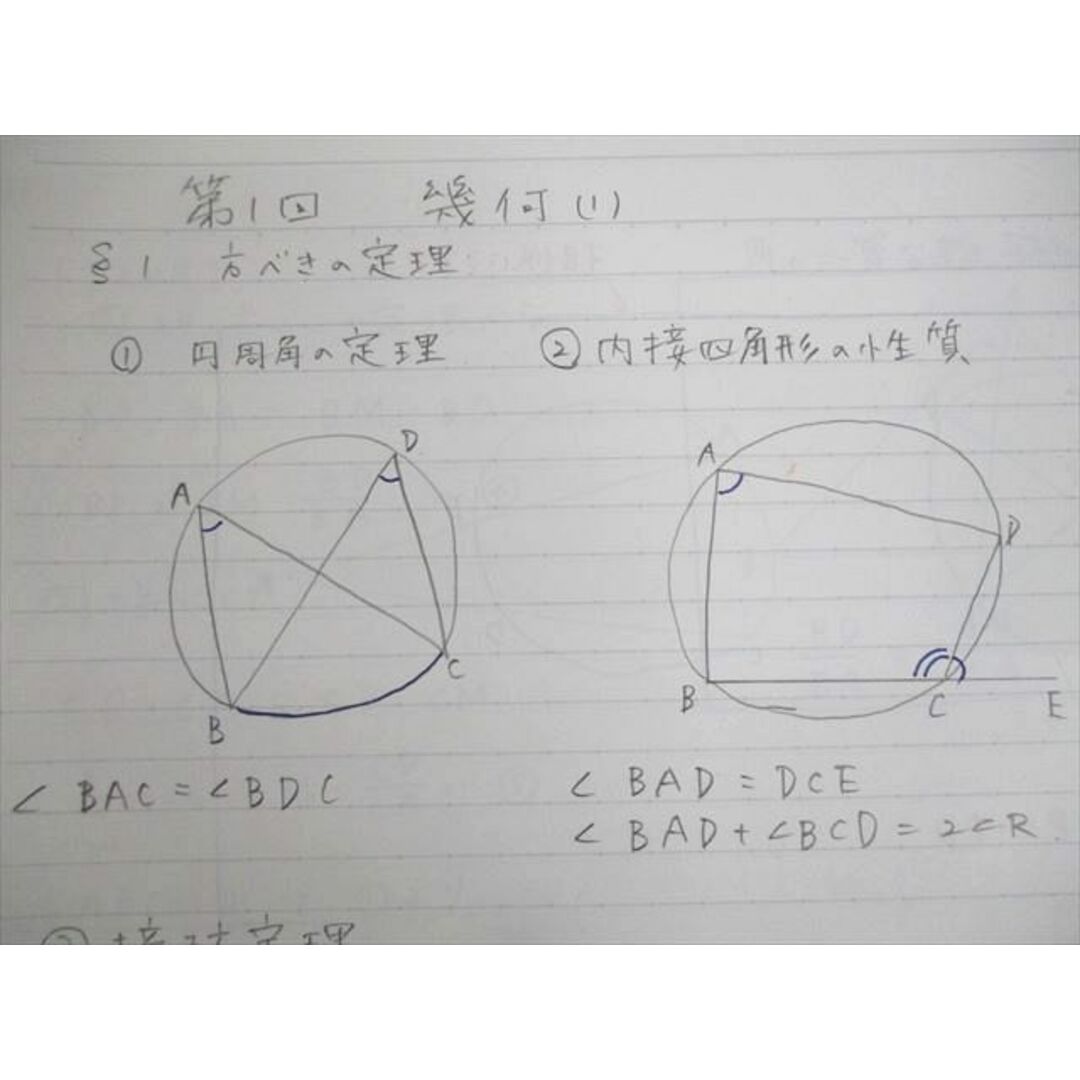 第1回 幾何(1)
§1 方べきの定理
① 円周角の定理
② 内接四角形の性質
A
D
B
C
∠BAC=∠BDC
A
D
B
C
E
∠BAD=DCE
∠BAD+∠BCD=2∠R
定理